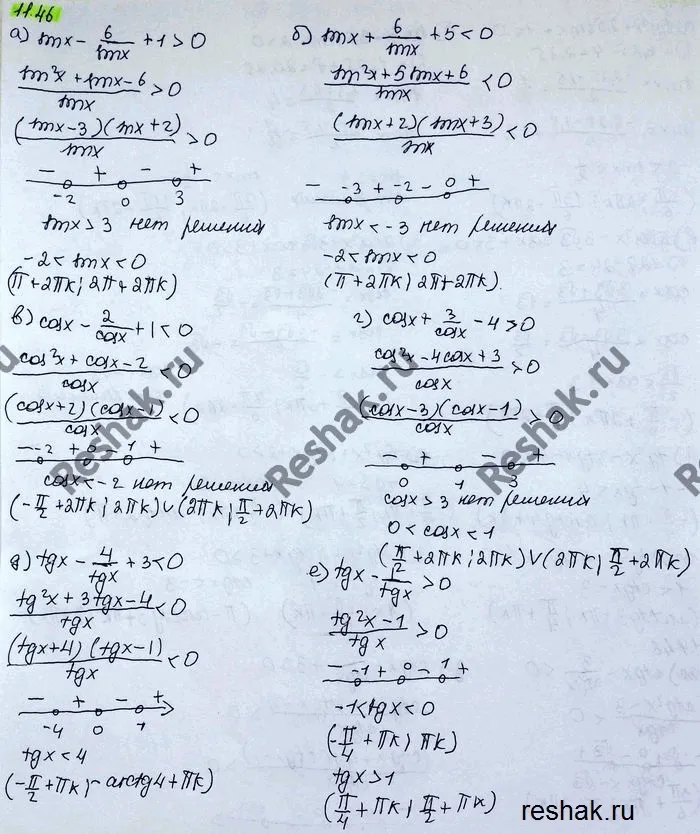 11.46
а) sinx - 6/sinx + 1 > 0
(sin²x + sinx - 6)/sinx > 0
((sinx - 3)(sinx + 2))/sinx > 0
- + - +
-2 0 3
sinx > 3 нет решения
-2 < sinx < 0
(π + 2πk; 2π + 2πk)
б) sinx + 6/sinx + 5 < 0
(sin²x + 5sinx + 6)/sinx < 0
((sinx + 2)(sinx + 3))/sinx < 0
- -3 + -2 - 0 +
sinx < -3 нет решения
-2 < sinx < 0
(π + 2πk; 2π + 2πk).
в) cosx - 2/cosx + 1 < 0
(cos²x + cosx - 2)/cosx < 0
((cosx + 2)(cosx - 1))/cosx < 0
- -2 + 0 - 1 +
cosx < -2 нет решения
(-π/2 + 2πk; 2πk) ∪ (2πk; π/2 + 2πk)
г) cosx + 3/cosx - 4 > 0
(cos²x - 4cosx + 3)/cosx > 0
((cosx - 3)(cosx - 1))/cosx > 0
- + - +
0 1 3
cosx > 3 нет решения
0 < cosx < 1
(π/2 + 2πk; 2πk) ∪ (2πk; π/2 + 2πk)
д) tgx - 4/tgx + 3 < 0
(tg²x + 3tgx - 4)/tgx < 0
((tgx + 4)(tgx - 1))/tgx < 0
- + - +
-4 0 1
tgx < 4
(-π/2 + πk; -arctg4 + πk)
е) tgx - 1/tgx > 0
(tg²x - 1)/tgx > 0
- -1 + 0 - 1 +
-1 < tgx < 0
(-π/4 + πk; πk)
tgx > 1
(π/4 + πk; π/2 + πk)
Reshak.ru
Reshak.ru
reshak.ru